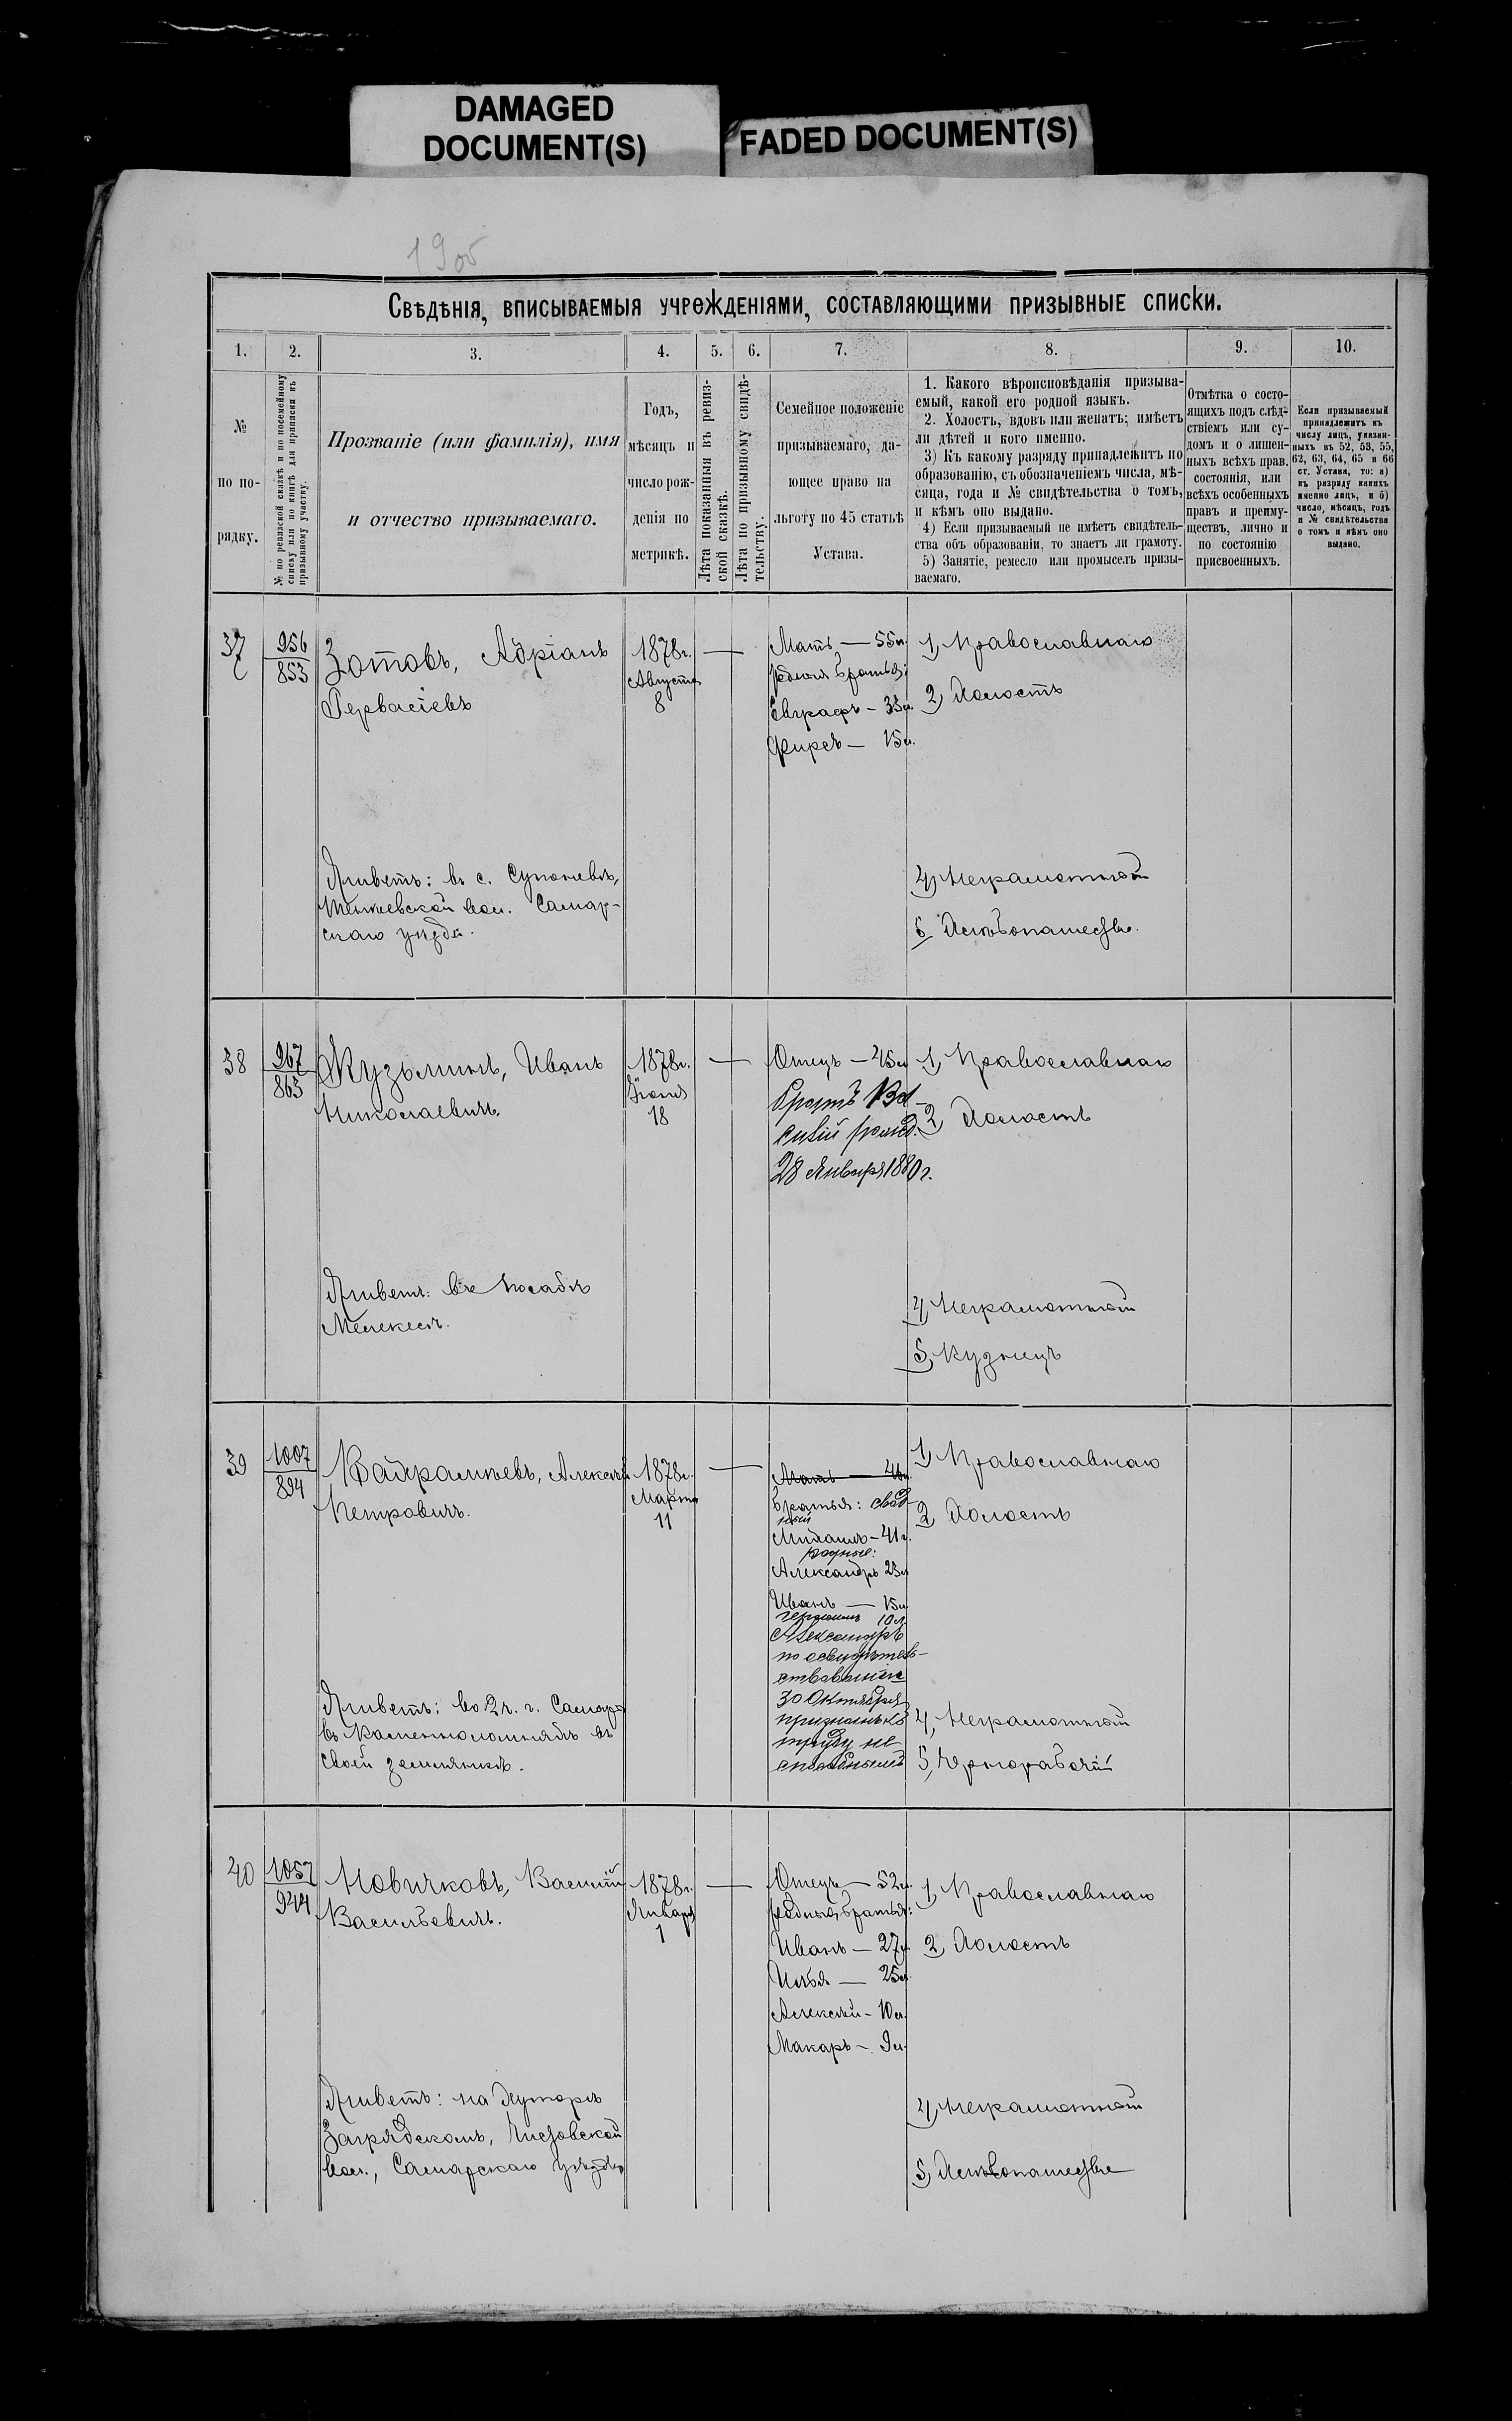 DAMAGED
DOCUMENT(S)
FADED DOCUMENT(S)
Свѣдѣнія, вписываемыя учрежденіями, составляющими призывные списки.
1. 2. 3. 4. 5. 6. 7. 8. 9. 10.
№
по по-
рядку.
№ по ревизской сказкѣ и по посемейному
списку или по книгѣ для приписки къ
призывному участку.
Прозваніе (или фамилія), имя
и отчество призываемаго.
Годъ,
мѣсяцъ и
число рож-
денія по
метрикѣ.
Лѣта показанныя въ ревиз-
ской сказкѣ.
Лѣта по призывному свидѣ-
тельству.
Семейное положеніе
призываемаго, да-
ющее право на
льготу по 45 статьѣ
Устава.
1. Какого вѣроисповѣданія призыва-
емый, какой его родной языкъ.
2. Холостъ, вдовъ или женатъ; имѣетъ
ли дѣтей и кого именно.
3) Къ какому разряду принадлежитъ по
образованію, съ обозначеніемъ числа, мѣ-
сяца, года и № свидѣтельства о томъ,
и кѣмъ оно выдано.
4) Если призываемый не имѣетъ свидѣтель-
ства объ образованіи, то знаетъ ли грамоту.
5) Занятіе, ремесло или промыселъ призы-
ваемаго.
Отмѣтка о состо-
ящихъ подъ слѣд-
ствіемъ или су-
домъ и о лишен-
ныхъ всѣхъ правъ
состоянія, или
всѣхъ особенныхъ
правъ и преиму-
ществъ, лично и
по состоянію
присвоенныхъ.
Если призываемый
принадлежитъ къ
числу лицъ, указан-
ныхъ въ 52, 53, 55,
62, 63, 64, 65 и 66
ст. Устава, то: а)
къ разряду какихъ
именно лицъ, и б)
число, мѣсяцъ, годъ
и № свидѣтельства
о томъ и кѣмъ оно
выдано.
37
956
853
Зотовъ, Адріанъ
Гервасіевъ
Живетъ: въ с.
вол. Самар-
скаго уѣзда.
1878г.
Августа
8
Мать — 55л.
родные братья:
Евграфъ — 33л.
Фирсъ — 15л.
1, Православнаго
2, Холостъ
4, Неграмотный
5 Хлѣбопашество.
38
967
863
Кузьминъ, Иванъ
Николаевичъ.
Живетъ: въ посадѣ
Мелекесъ.
1878г.
Іюня
18
Отецъ — 45л
Братъ Ва-
силій рожд.
28 Января 1880 г.
1, Православнаго
2, Холостъ
4, Неграмотный
5, Кузнецъ
39
1007
894
Алексѣй
Петровичъ.
Живетъ: во 2 ч. г. Самары
въ каменноломняхъ въ
своей землянкѣ.
1878г.
Марта
11
Мать — 46л.
братья: свод-
ный
Михаилъ — 41г.
родные:
Александръ 23л
Иванъ — 15л
10л.
Александръ
по освидѣтель-
ствованію
30 Октября
признанъ къ
труду не
способнымъ
1, Православнаго
2, Холостъ
4, Неграмотный
5, Чернорабочій
40
1057
944
Новичковъ, Василій
Васильевичъ.
Живетъ: на хуторѣ
Загрядскомъ,
вол., Самарскаго уѣзда
1878г.
Января
1
Отецъ — 52л.
родные братья:
Иванъ — 27л.
Илья — 25л.
Алексѣй — 10л.
Макаръ — 9л.
1, Православнаго
2, Холостъ
4, Неграмотный
5, Хлѣбопашество